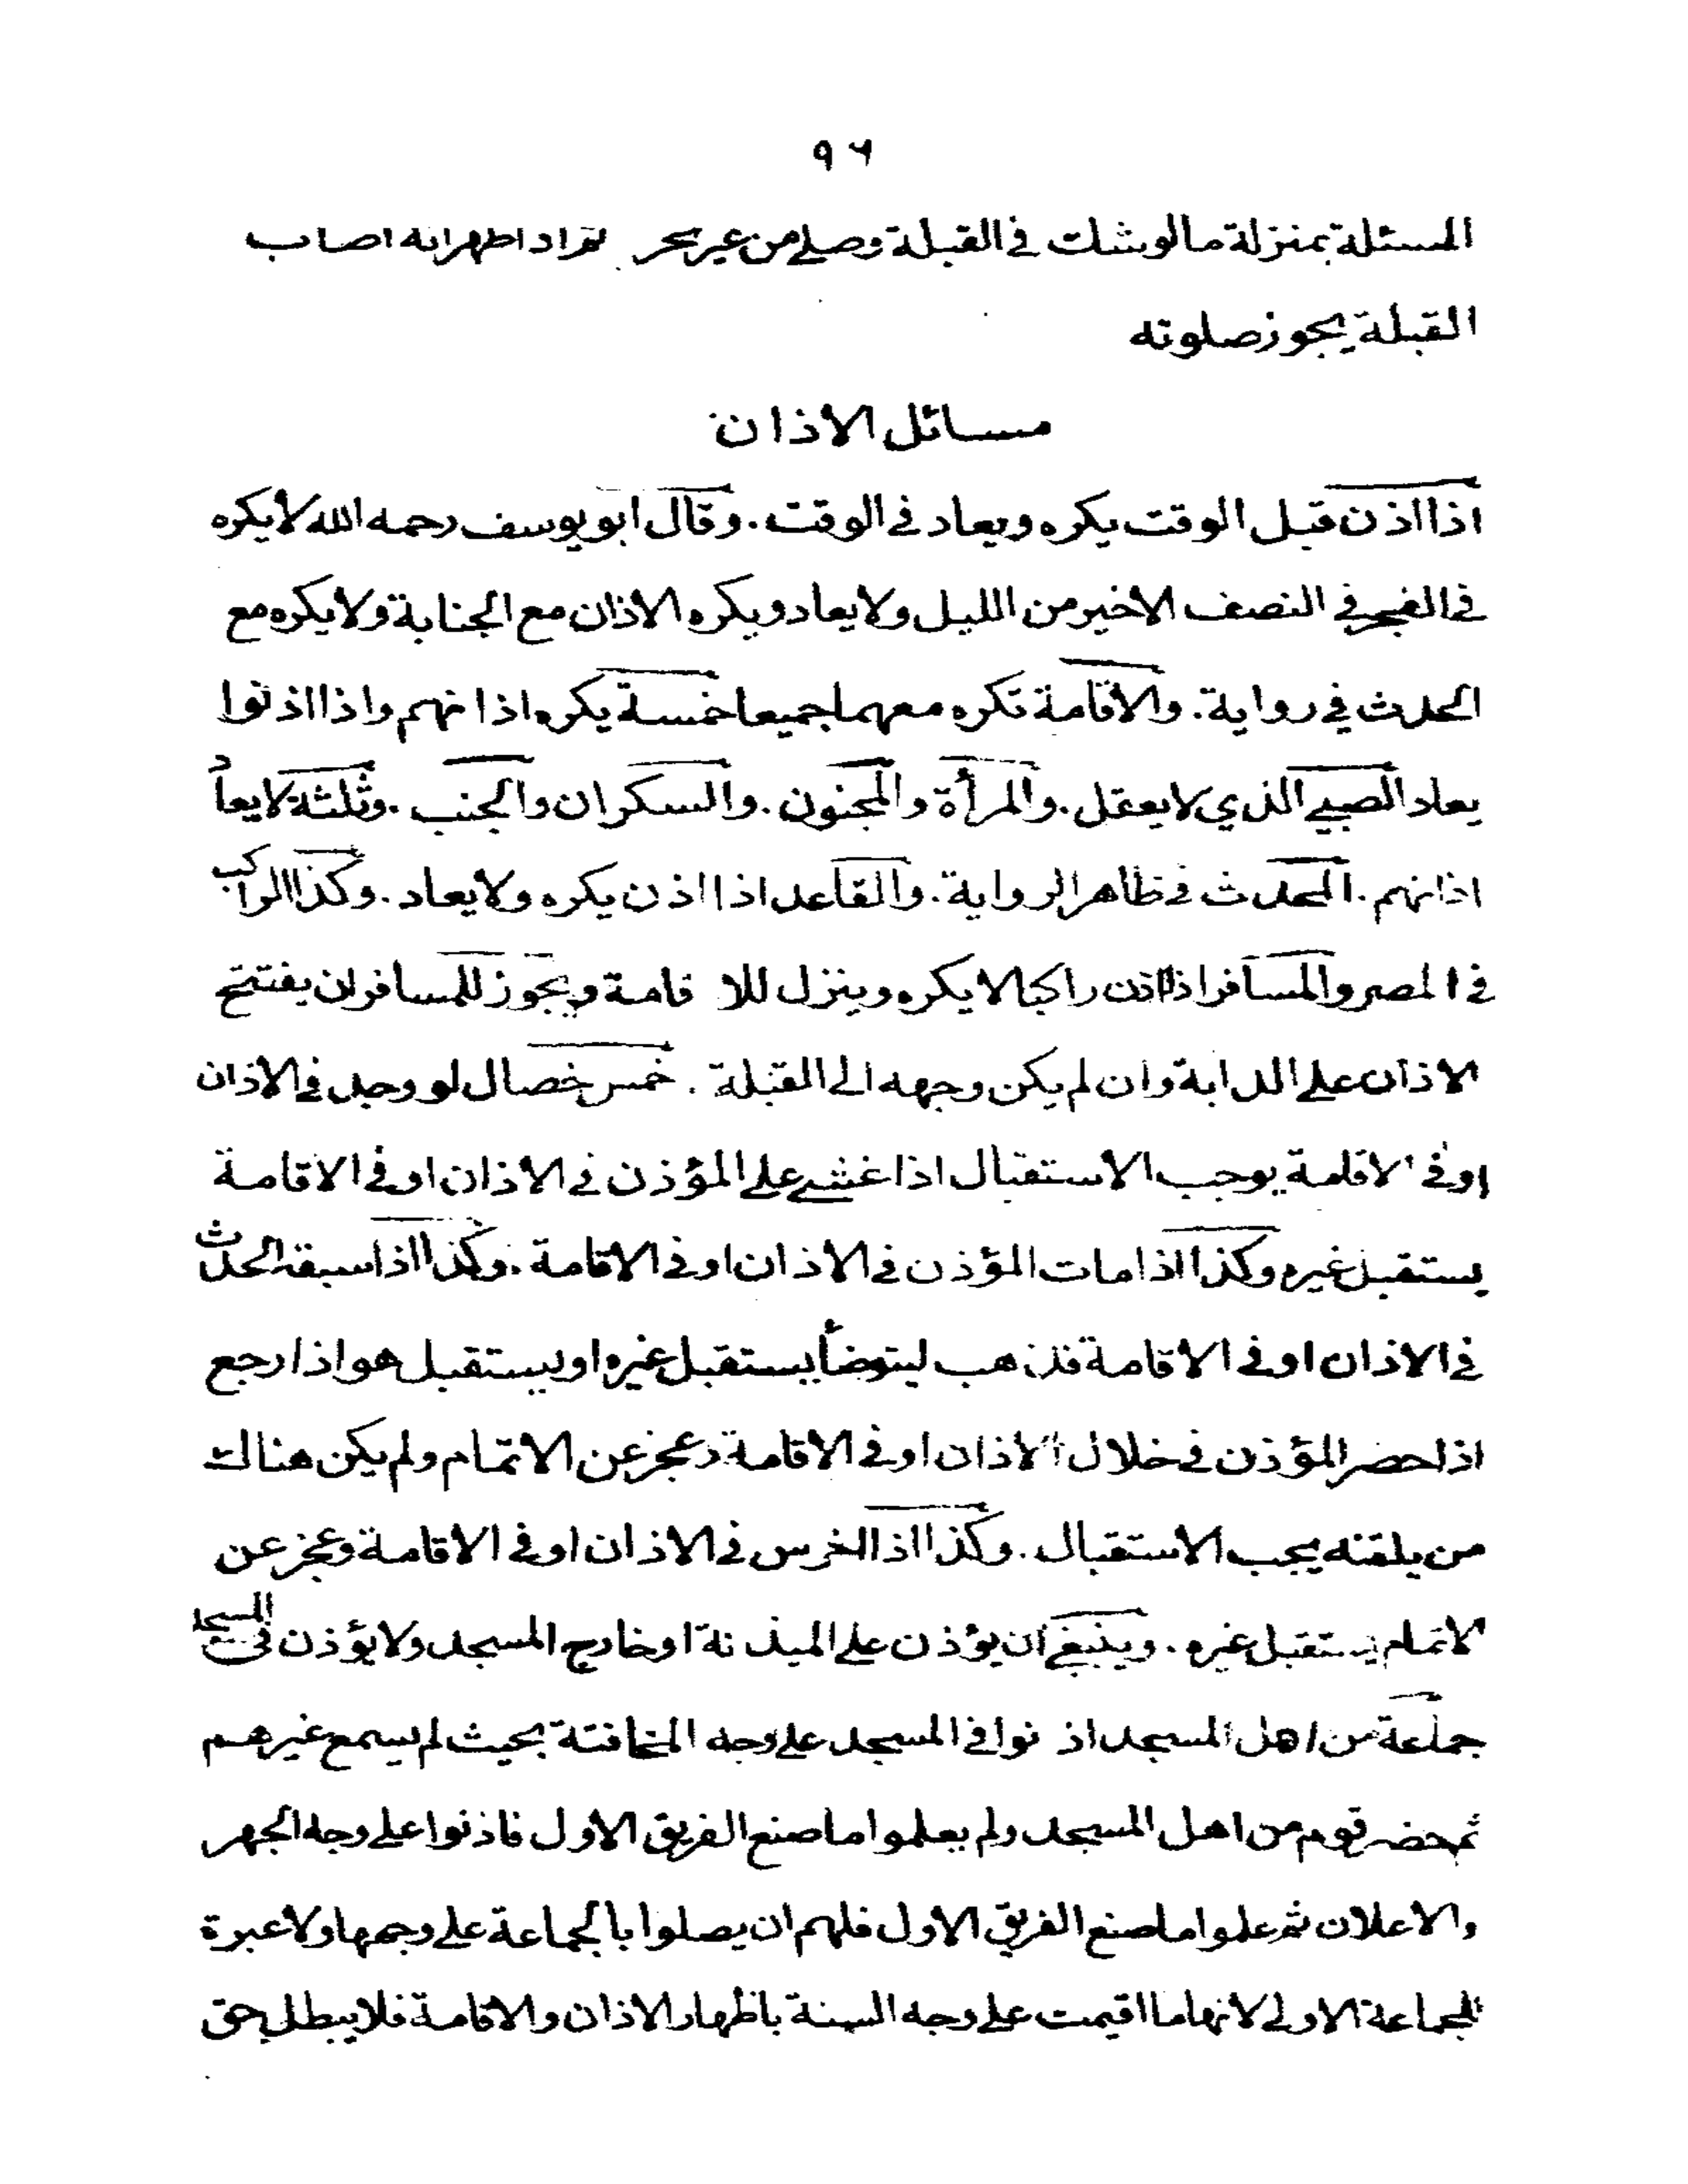 ٩٦
المسئلة بمنزلة مالوشك فى القبلة وصلى من غير اصاب
القبلة يجوز صلوته
مسائل الاذان
اذا اذن قبل الوقت يكره ويعاد فى الوقت . وقال ابو يوسف رحمه الله لا يكره
فى الفجر فى النصف الاخير من الليل ولا يعاد ويكره الاذان مع الجنابة ولا يكره مع
الحدث فى رواية . والاقامة تكره معهما جميعا خمسة يكره اذانهم واذا اذنوا
يعاد الصبى الذي لا يعقل . والمرأة والمجنون . والسكران والجنب . وثلثة لا يعاد
اذانهم . المحدث فى ظاهر الرواية . والقاعد اذا اذن يكره ولا يعاد . وكذا الراكب
فى المصر والمسافر اذا اذن راكبا لا يكره وينزل للاقامة ويجوز للمسافر ان يفتتح
الاذان على الدابة وان لم يكن وجهه الى القبلة . خمس خصال لو وجد فى الاذان
او فى الاقامة يوجب الاستقبال اذا غشى على المؤذن فى الاذان او فى الاقامة
يستقبل غيره وكذا اذا مات المؤذن فى الاذان او فى الاقامة . وكذا اذا سبقه الحدث
فى الاذان او فى الاقامة فذهب ليتوضأ يستقبل غيره او يستقبل هو اذا رجع
اذا حصر المؤذن فى خلال الاذان او فى الاقامة وعجز عن الاتمام ولم يكن هناك
من يلقنه يجب الاستقبال . وكذا اذا الخرس فى الاذان او فى الاقامة وعجز عن
الاتمام يستقبل غيره . وينبغى ان يؤذن على الميذنة او خارج المسجد ولا يؤذن فى المسجد
جماعة من اهل المسجد اذنوا فى المسجد على وجه المخافتة بحيث لم يسمع غيرهم
ثم حضر قوم من اهل المسجد ولم يعلموا ما صنع الفريق الاول فاذنوا على وجه الجهر
والاعلان ثم علموا ما صنع الفريق الاول فلهم ان يصلوا بالجماعة على وجهها ولا عبرة
للجماعة الاولى لانها ما اقيمت على وجه السنة باظهار الاذان والاقامة فلا يبطل حق